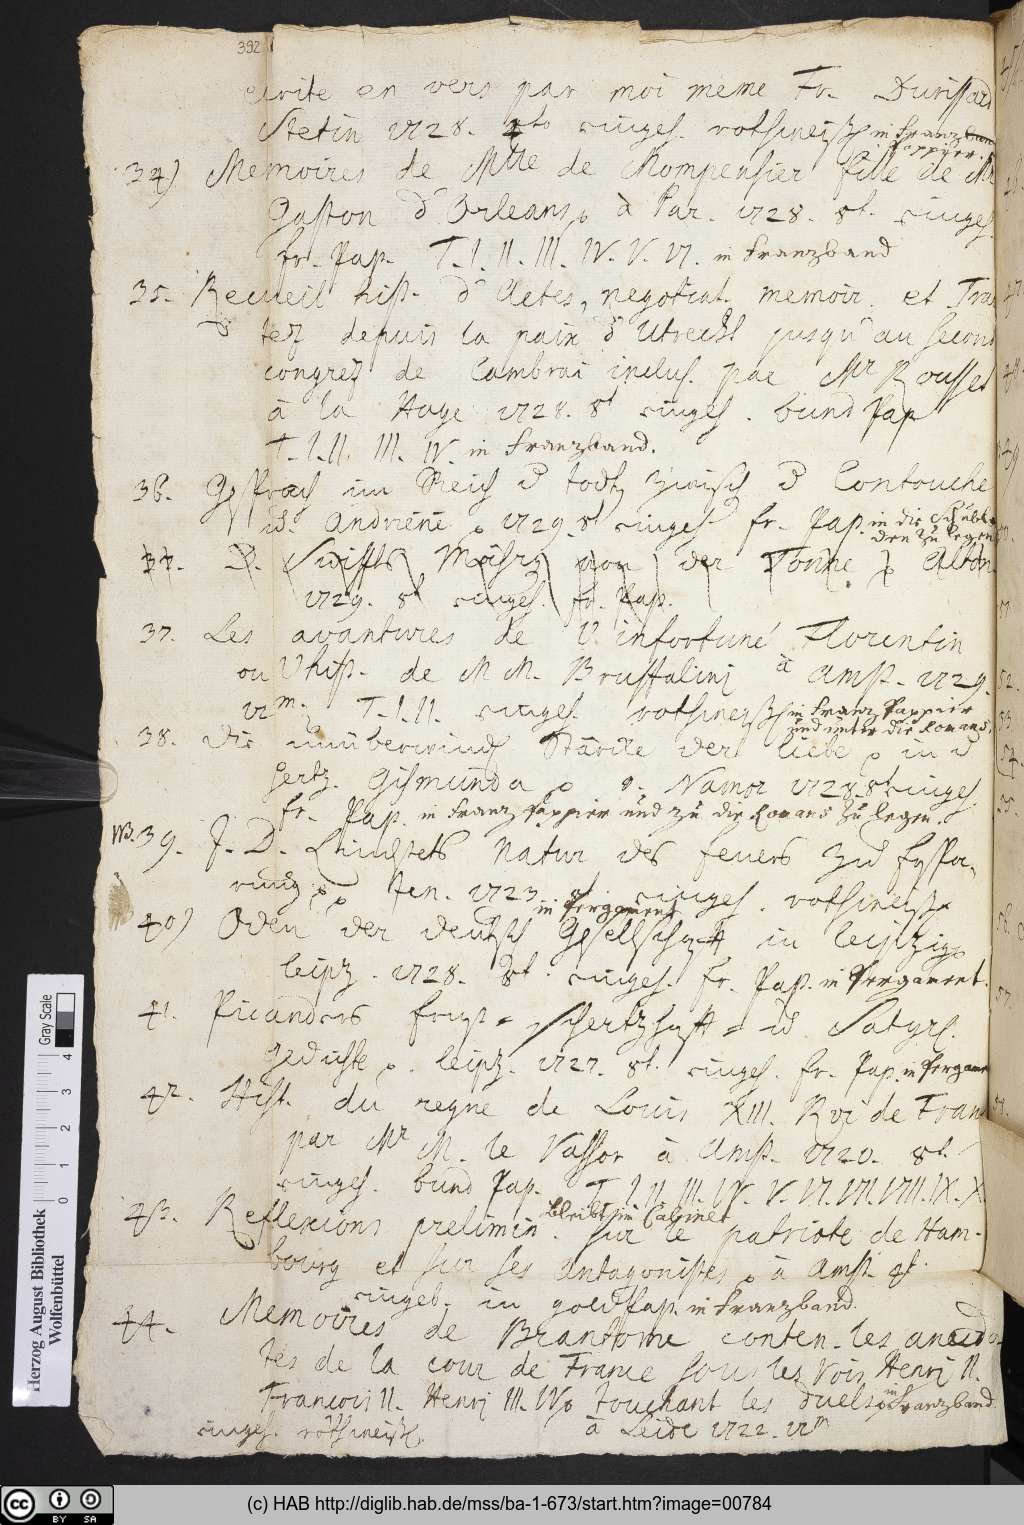 392
ecrite en vers par moi meme Fr. Durissard
Stetin 1728. 4to eingeh. rothsneidig in Franz
Pappier.
34) Memoires de Mlle de Mompensier fille de Mr
Gaston d'Orleans à Par. 1728. 8t. eingeh.
fr. Pap. T. I. II. III. IV. V. VI. in Franzband
35. Recueil hist. d'Actes, negotiat. memoir. et Trai
tez depuis la paix d'Utrecht jusqu'au second
congrez de Cambrai inclus. par Mr Rousset
à la Haye 1728. 8t eingeh. bund Pap
T. I. II. III. IV. in Franzband.
36. Gespräch im Reich d todt zwisch d Cartouche
u. 1729. 8t eingeh fr. Pap. in die Schubla
den zu legen
37. D. Swiffts Mährg von der Tonne Alton.
1729. 8t eingeh. fr. Pap.
37. Les avantures de l'infortuné Florentin
ou l'hist. de M M. Brussalini à Amst. 1729.
12m. T. I. II. eingeh. rothsneidig in Franz Pappier
und unter die Romans.
38. Die unüberwindl Stärcke der liebe in d
Hertz. Gismunda Namor 1728. 8t eingeh
fr. Pap. in Franz Pappier und zu die Romans zu legen.
NB. 39. J. D. Natur des feuers
Jen. 1723. 8t. eingeh. rothsneidig
in Pergament
40) Oden der deutsch Gesellschafft in leipzig
leipz. 1728. 8t. eingeh. fr. Pap. in Pergament.
41. Picanders Ernst-Schertzhafft- u Satyrs.
gedichte. leipz. 1727. 8t. eingeh. fr. Pap. in Pergame
42. Hist. du regne de Louis XIII. Roi de Fran
par Mr M. le Vassor à Amst. 1720. 8t.
eingeh. bund Pap. T. I. II. III. IV. V. VI. VII. VIII. IX. X
bleibt im Cabinet
43. Reflexions prelimin. sur le patriote de Ham-
bourg et sur ses Antagonistes à Amst. 4t.
eingeb. in goldpap. in Franzband.
44. Memoires de Brantome conten. les anecdo-
tes de la cour de France sous les Rois Henri II.
Francois II. Henri III. IV touchant les duels in Franzband.
eingeh. rothsneidig. à Leide 1722. 12m
Herzog August Bibliothek
Wolfenbüttel
0 1 2 3 4
Gray Scale
BY SA
(c) HAB http://diglib.hab.de/mss/ba-1-673/start.htm?image=00784